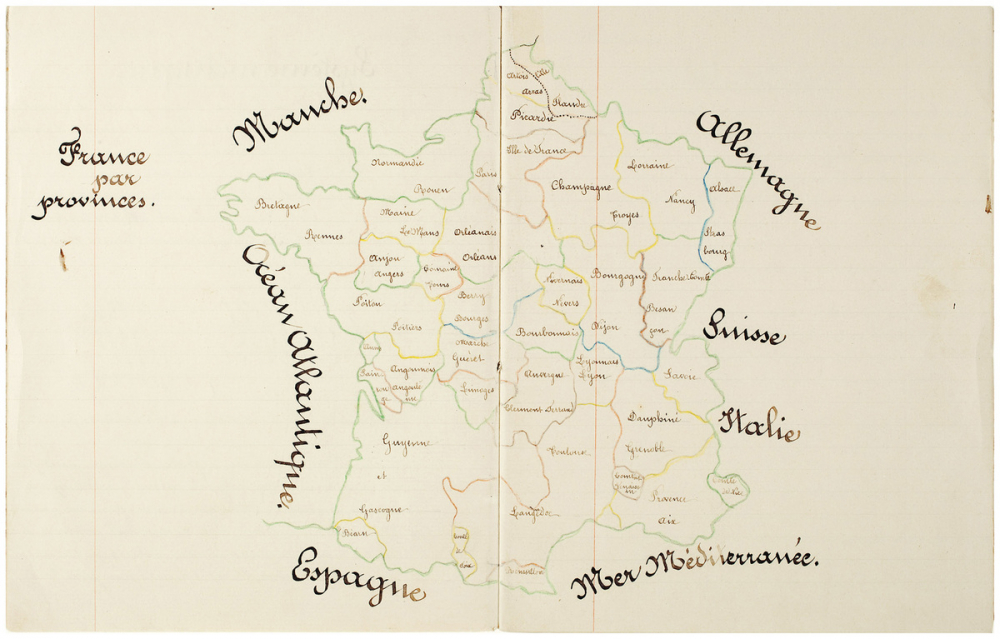 France
par
provinces.
Manche.
Allemagne
Océan Atlantique.
Suisse
Italie
Espagne
Mer Méditerranée.
Artois
Arras
Flandre
Picardie
Ile de France
Paris
Normandie
Rouen
Champagne
Troyes
Lorraine
Nancy
Alsace
Stras
bourg
Bretagne
Rennes
Maine
Le Mans
Orléanais
Orléans
Anjou
Angers
Touraine
Tours
Berry
Bourges
Nivernais
Nevers
Bourgogne
Dijon
Franche Comté
Besan
çon
Poitou
Poitiers
Marche
Guéret
Bourbonnais
Aunis
Angoumois
Angoulê
me
Limoges
Auvergne
Clermont Ferrand
Lyonnais
Lyon
Savoie
Dauphiné
Grenoble
Guyenne
et
Gascogne
Toulouse
Languedoc
Provence
Aix
Comté
de Nice
Béarn
Comté
de
Foix
Roussillon